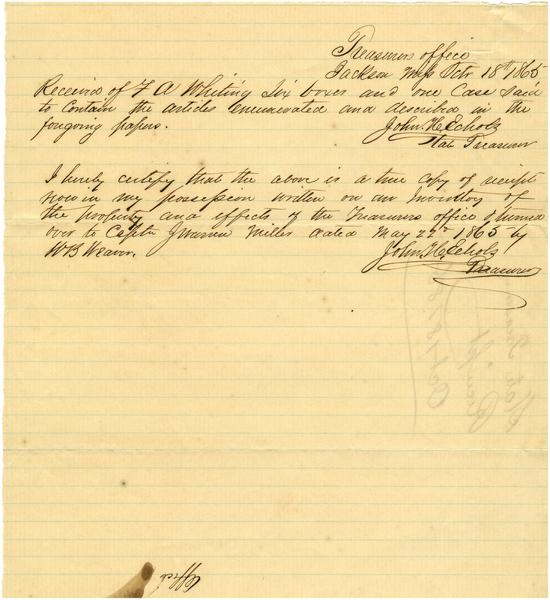 Treasurers office
Jackson Miss Octr 18th 1865
Received of F A Whiting Six boxes and one Case said
to contain the articles enumerated and described in the
foregoing papers.
John H Echolz
State Treasurer
I hereby certify that the above is a true copy of receipt
now in my possession written on an Inventory of
the property and effects of the Treasurers office & turned
over to Captn J Warren Miller dated May 22d 1865 by
W B Weaver.
John H Echolz
Treasurer